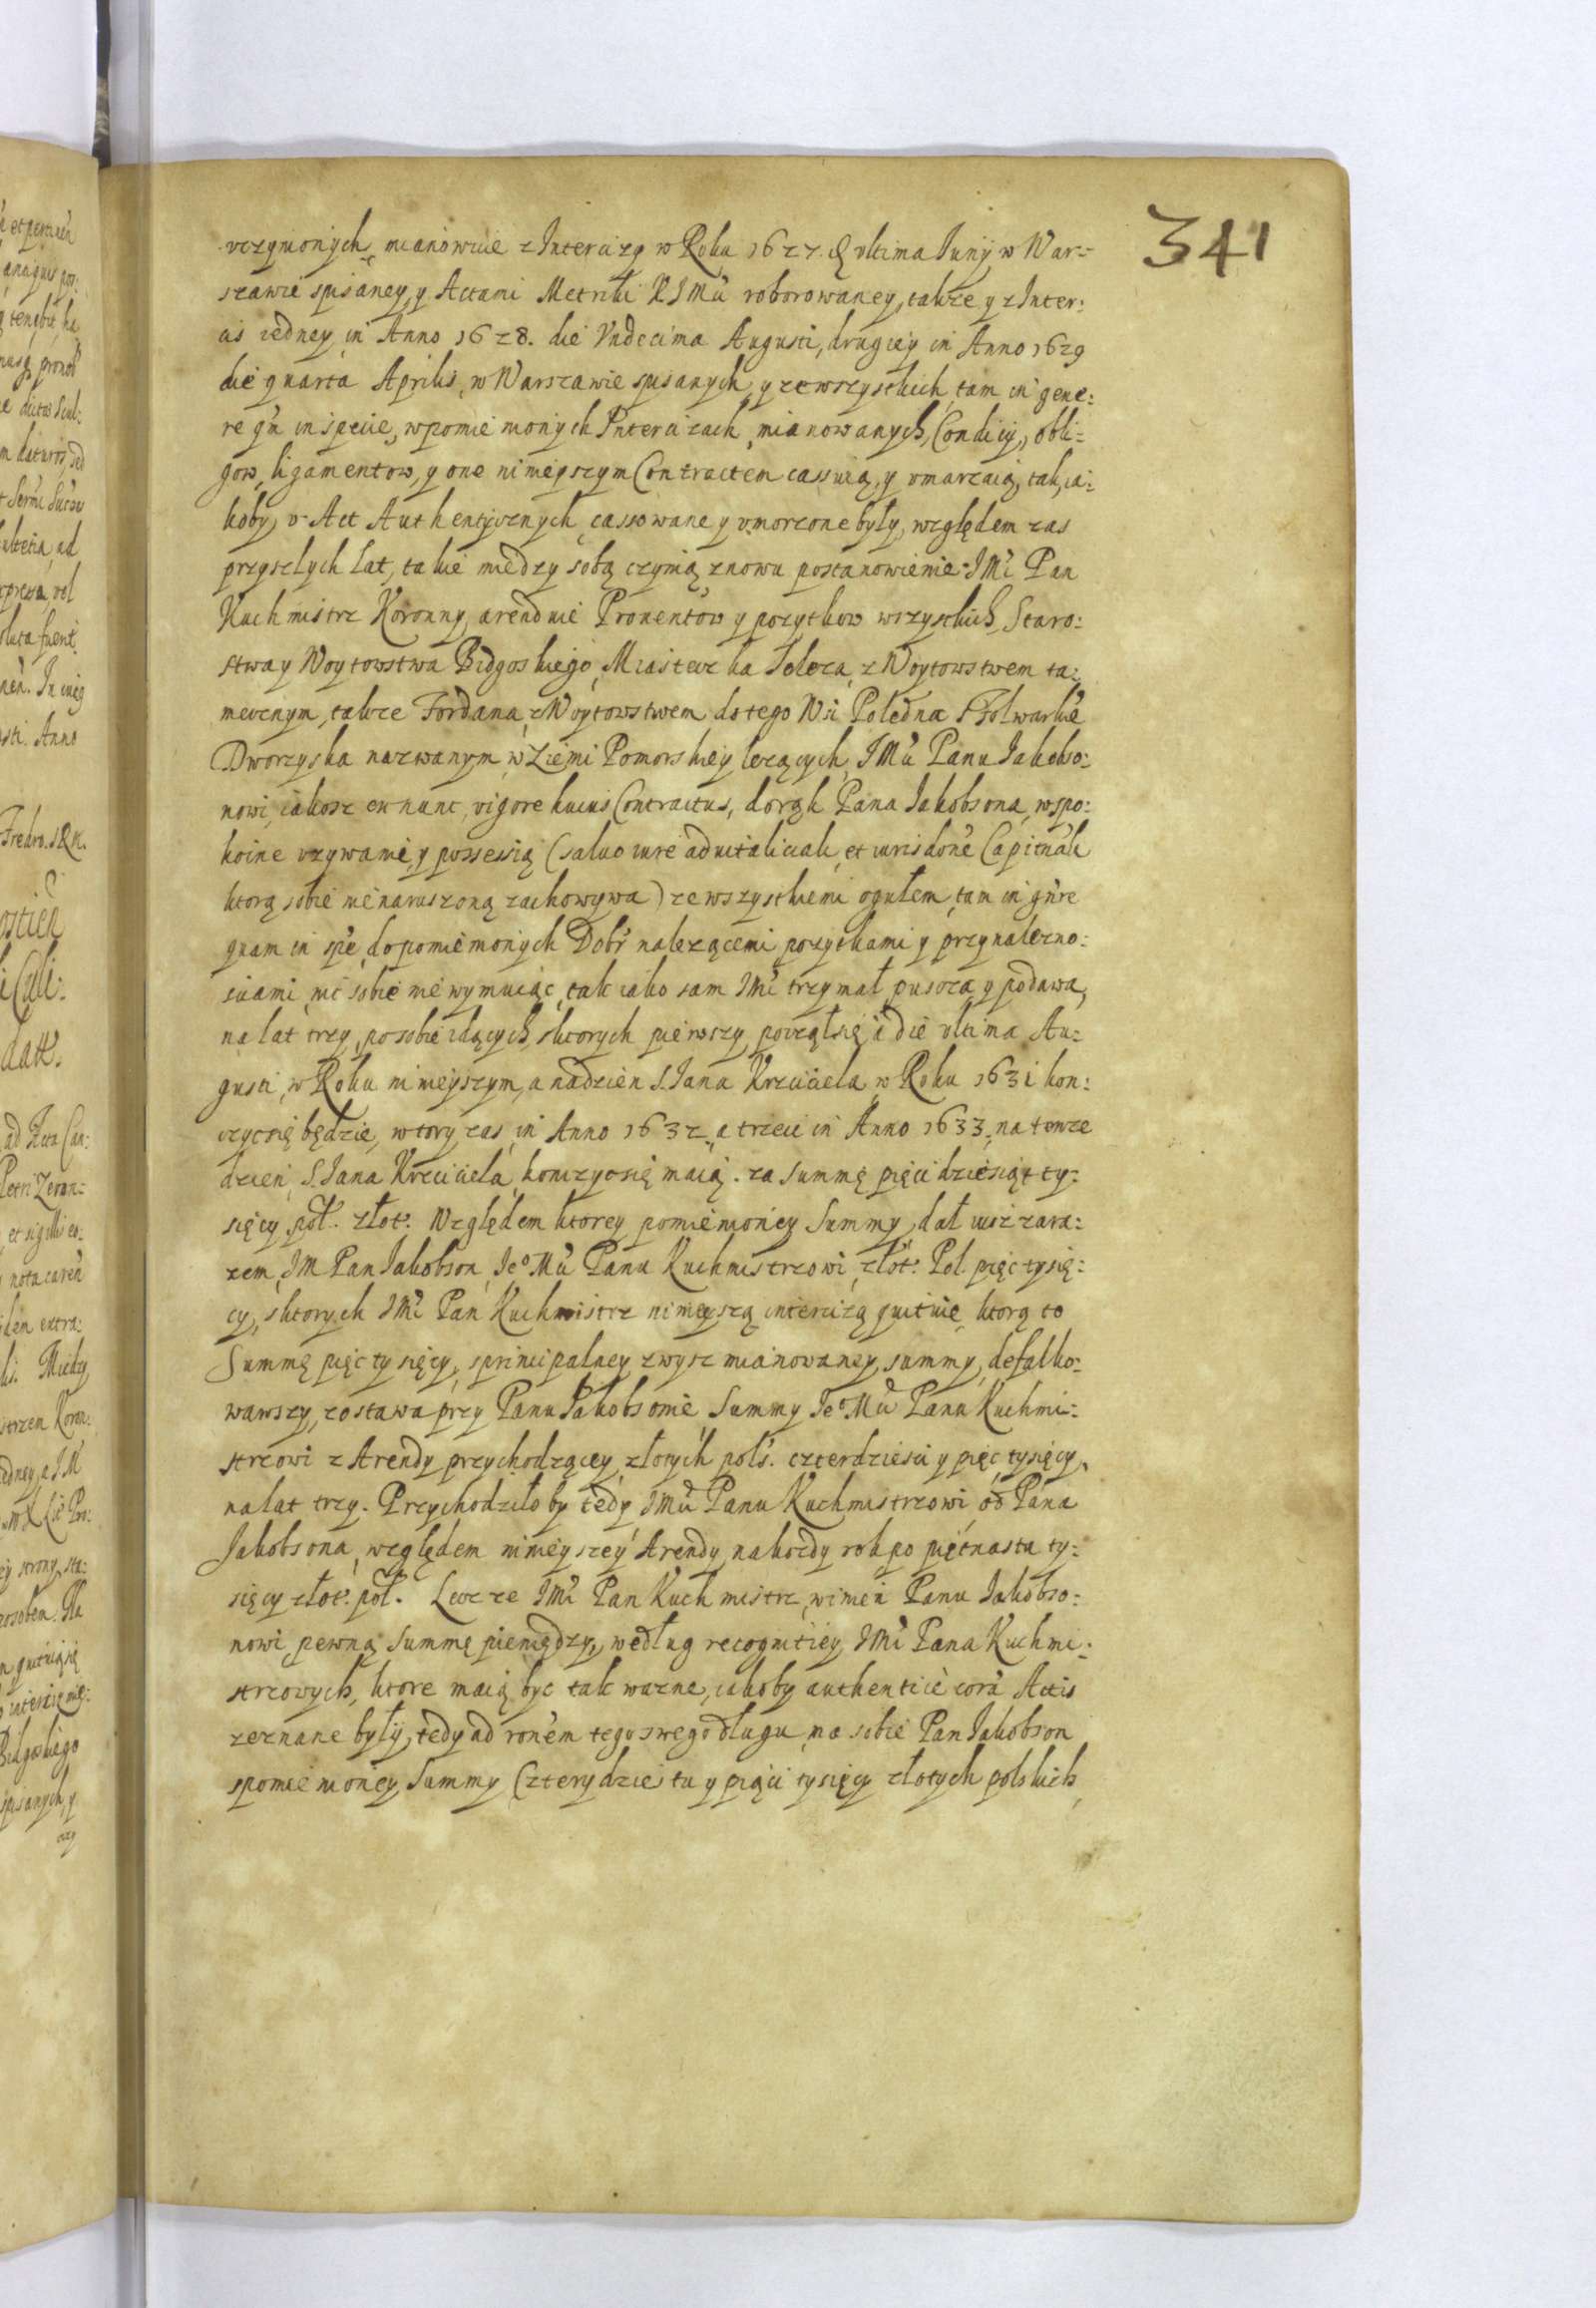 341
uczynionych, mianowicie z Intercizą w Roku 1627. d ultima Iunij w War=
szawie spisaney, y Actami Metriki KJMći roborowaney, także y z Inter:
cis iedney in Anno 1628. die Vndecima Augusti, drugiey in Anno 1629
die quarta Aprilis, w Warszawie spisanych, y ze wszystkich tam in gene:
re qm in specie, w pomienionych Intercizach mianowanych, Condicij, obli=
gow, ligamentow, y one nimieyszym Contractem cassuią, y vmarzaią, tak, ia:
koby, v Act Authentycznych cassowane y vmorzone były, względem zas
przyszlych lat, takie między sobą czynią znowu postanowienie. JMć Pan
Kuchmistrz Koronny, arenduie Prowentow y pozytkow wszystkich, Staro:
stwa y Woytowstwa Bidgoskiego, Miasteczka Solca, z Woytowstwem ta:
mecznym, także Fordana z Woytowstwem do tego Wsi Poledna s Folwarkiē
Dworzyska nazwanym, w Ziemi Pomorskiey lezących, JMći Panu Iakobso:
nowi, iakosz ex nunc, vigore huius Contractus, do rąk Pana Iakobsona, w spo:
koine vzywanie, y possessią (saluo iure aduitaliciali, et iurisdōne Capitnāli
ktorą sobie nienaruszoną zachowywa) ze wszystkiemi ogułem, tam in gn̄re
quam in spē, do pomienionych Dobr nalezącemi pozytkami y przynalezno:
sciami, nic sobie nie wymuiąc, tak iako sam JMć trzymał puscza y podawa,
na lat trzy, po sobie idących, s ktorych pierwszy począł się à die ultima Au:
gusti, w Roku nimieyszym, a na dzien S. Iana Krzciciela, w Roku 1631 kon:
czyc się będzie, wtory zas in Anno 1632, a trzeci in Anno 1633, na tenze
dzien S. Iana Krzciciela, konczyc się maią. za summę pięci dziesiąt ty:
sięcy pol. złot. Względem ktorey pomienioney Summy, dał iusz zara:
zem, JM Pan Iakobson, Ieº Mći Panu Kuchmistrzowi, złot. Pol. pięc tysię:
cy, s ktorych JMć Pan Kuchmistrz nimieyszą intercizą quituie, ktorą to
Summę pięc tysięcy, s principalney zwysz mianowaney, summy, defalko:
wawszy, zostawa przy Panu Iakobsonie Summy Ieº Mći Panu Kuchmi:
strzowi z Arendy przychodzącey, złotych pols. czterdziesci y pięc tysięcy,
na lat trzy. Przychodziło by tedy JMći Panu Kuchmistrzowi, od Pana
Iakobsona, względem nimieyszey Arendy, na kozdy rok po piętnastu ty:
sięcy złot. pol. Lecz ze JMć Pan Kuchmistrz, winien Panu Iakobso:
nowi pewną Summę pieniędzy, według recogniciey, JMći Pana Kuchmi:
strzowych, ktore maią byc tak wazne, iakoby authenticè corā Actis
zeznane były, tedy ad ronēm tego swego długu, na sobie Pan Iakobson
s pomienioney Summy Czterydziestu y pięci tysięcy złotych polskich